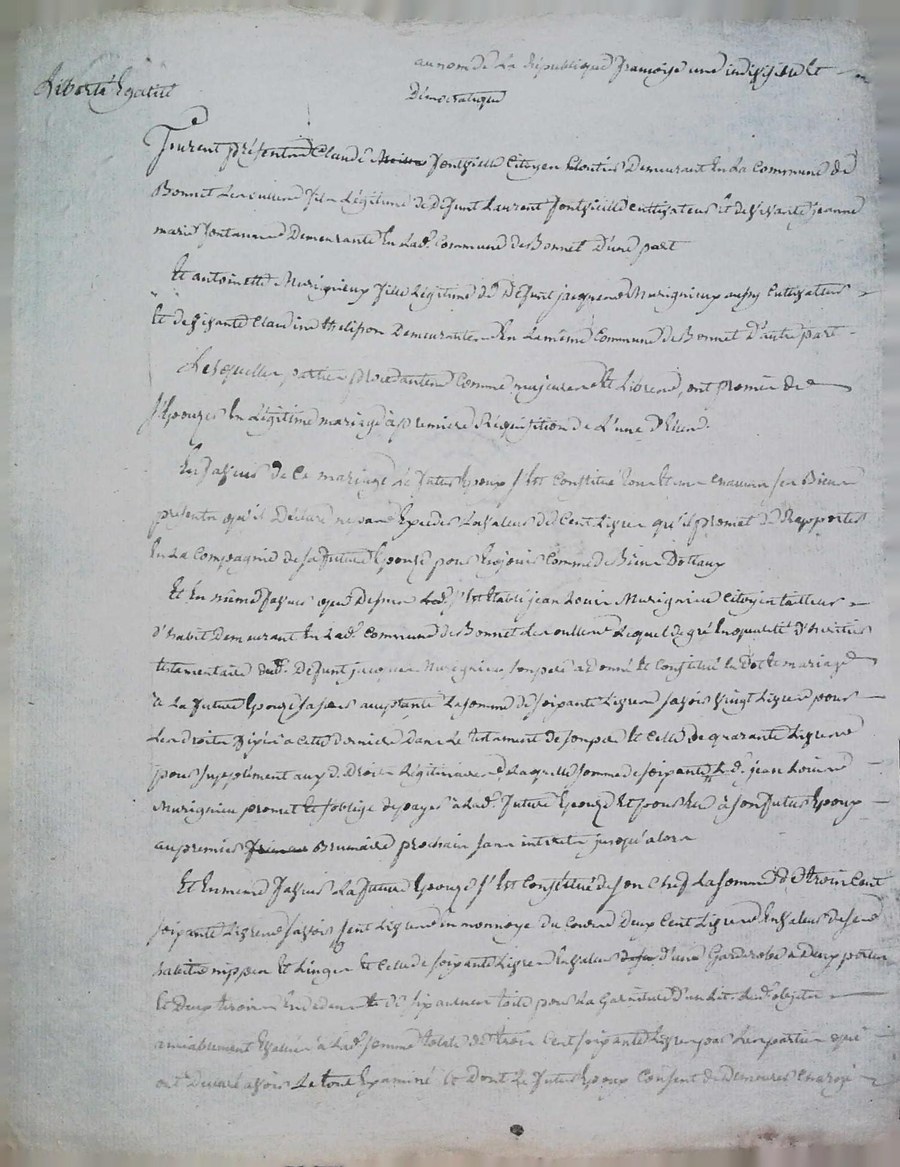 au nom de La république françoise une indivisible Et
Liberté Egalité
Démocratique
Furent présents Claude fontvielle Citoyen Demeurant En La Commune de
Bonnet Les oulles fils Légitime de Défunt Laurent fontvielle cultivateur et de vivante jeanne
marie fontanne Demeurante En lad. Commune de Bonnet D'une part
Et antoinette Murigneux fille Légitime de Défunt jacques Murigneux aussy Cultivateur
Et de vivante Claudine thelisson Demeurantes En La même Commune de Bonnet D'autre part
Lesquelles parties procedantes Comme majeures Et Libres, ont promis de
s'Epouzer En Légitime mariage à premiere Réquisition de L'une D'Elles.
En faveur de Ce mariage Le futur Epoux s'est Constitué tous Et un chacun ses Biens
presents qu'il Déclare ne pas Exceder La valeur de Cent Livres qu'il promet de Rapporter
En La Compagnie de sa future Epouze pour toujours Comme Biens Dottaux
Et En même faveur que Dessus s'est Etabli jean Louis Murigneux Citoyen tailleur
d'habit Demeurant En Lad. Commune de Bonnet Les oulles Lequel de gré En qualité D'héritier
testamentaire dud. Défunt jacques Murigneux, son pere a Donné Et Constitué En Dot Et mariage
à La future Epouze sa sœur acceptante La somme de soixante Livres savoir vingt Livres pour
Les droits fixés a cette derniere Dans Le testament de son pere Et Celle de quarante Livres
pour supplément aux d. Droits Légitimaires De Laquelle somme de soixante Led. jean Louis
Murigneux promet Et s'oblige de payer à Lad. future Epouze Et pour Elle à son futur Epoux
au premier Brumaire prochain sans intérêts jusqu'alors
Et En même faveur La future Epouze s'Est Constitué de son Chef La somme de trois Cent
soixante Livres savoir Cent Livres En monnoye du Cours Deux Cent Livres En valeur de ses
habits nippes Et Linges Et Celle de soixante Livres En valeur d'une Garderobe a Deux portes
Et Deux tiroirs de six aunes toile pour La Garniture D'un Lit. Lesd. objets
amiablement Evalués à Lad. somme totale de trois Cent soixante Livres par Les parties qui
ont Déclaré avoir Le tout Examiné Et Dont Le futur Epoux Consent de Demeurer Chargé